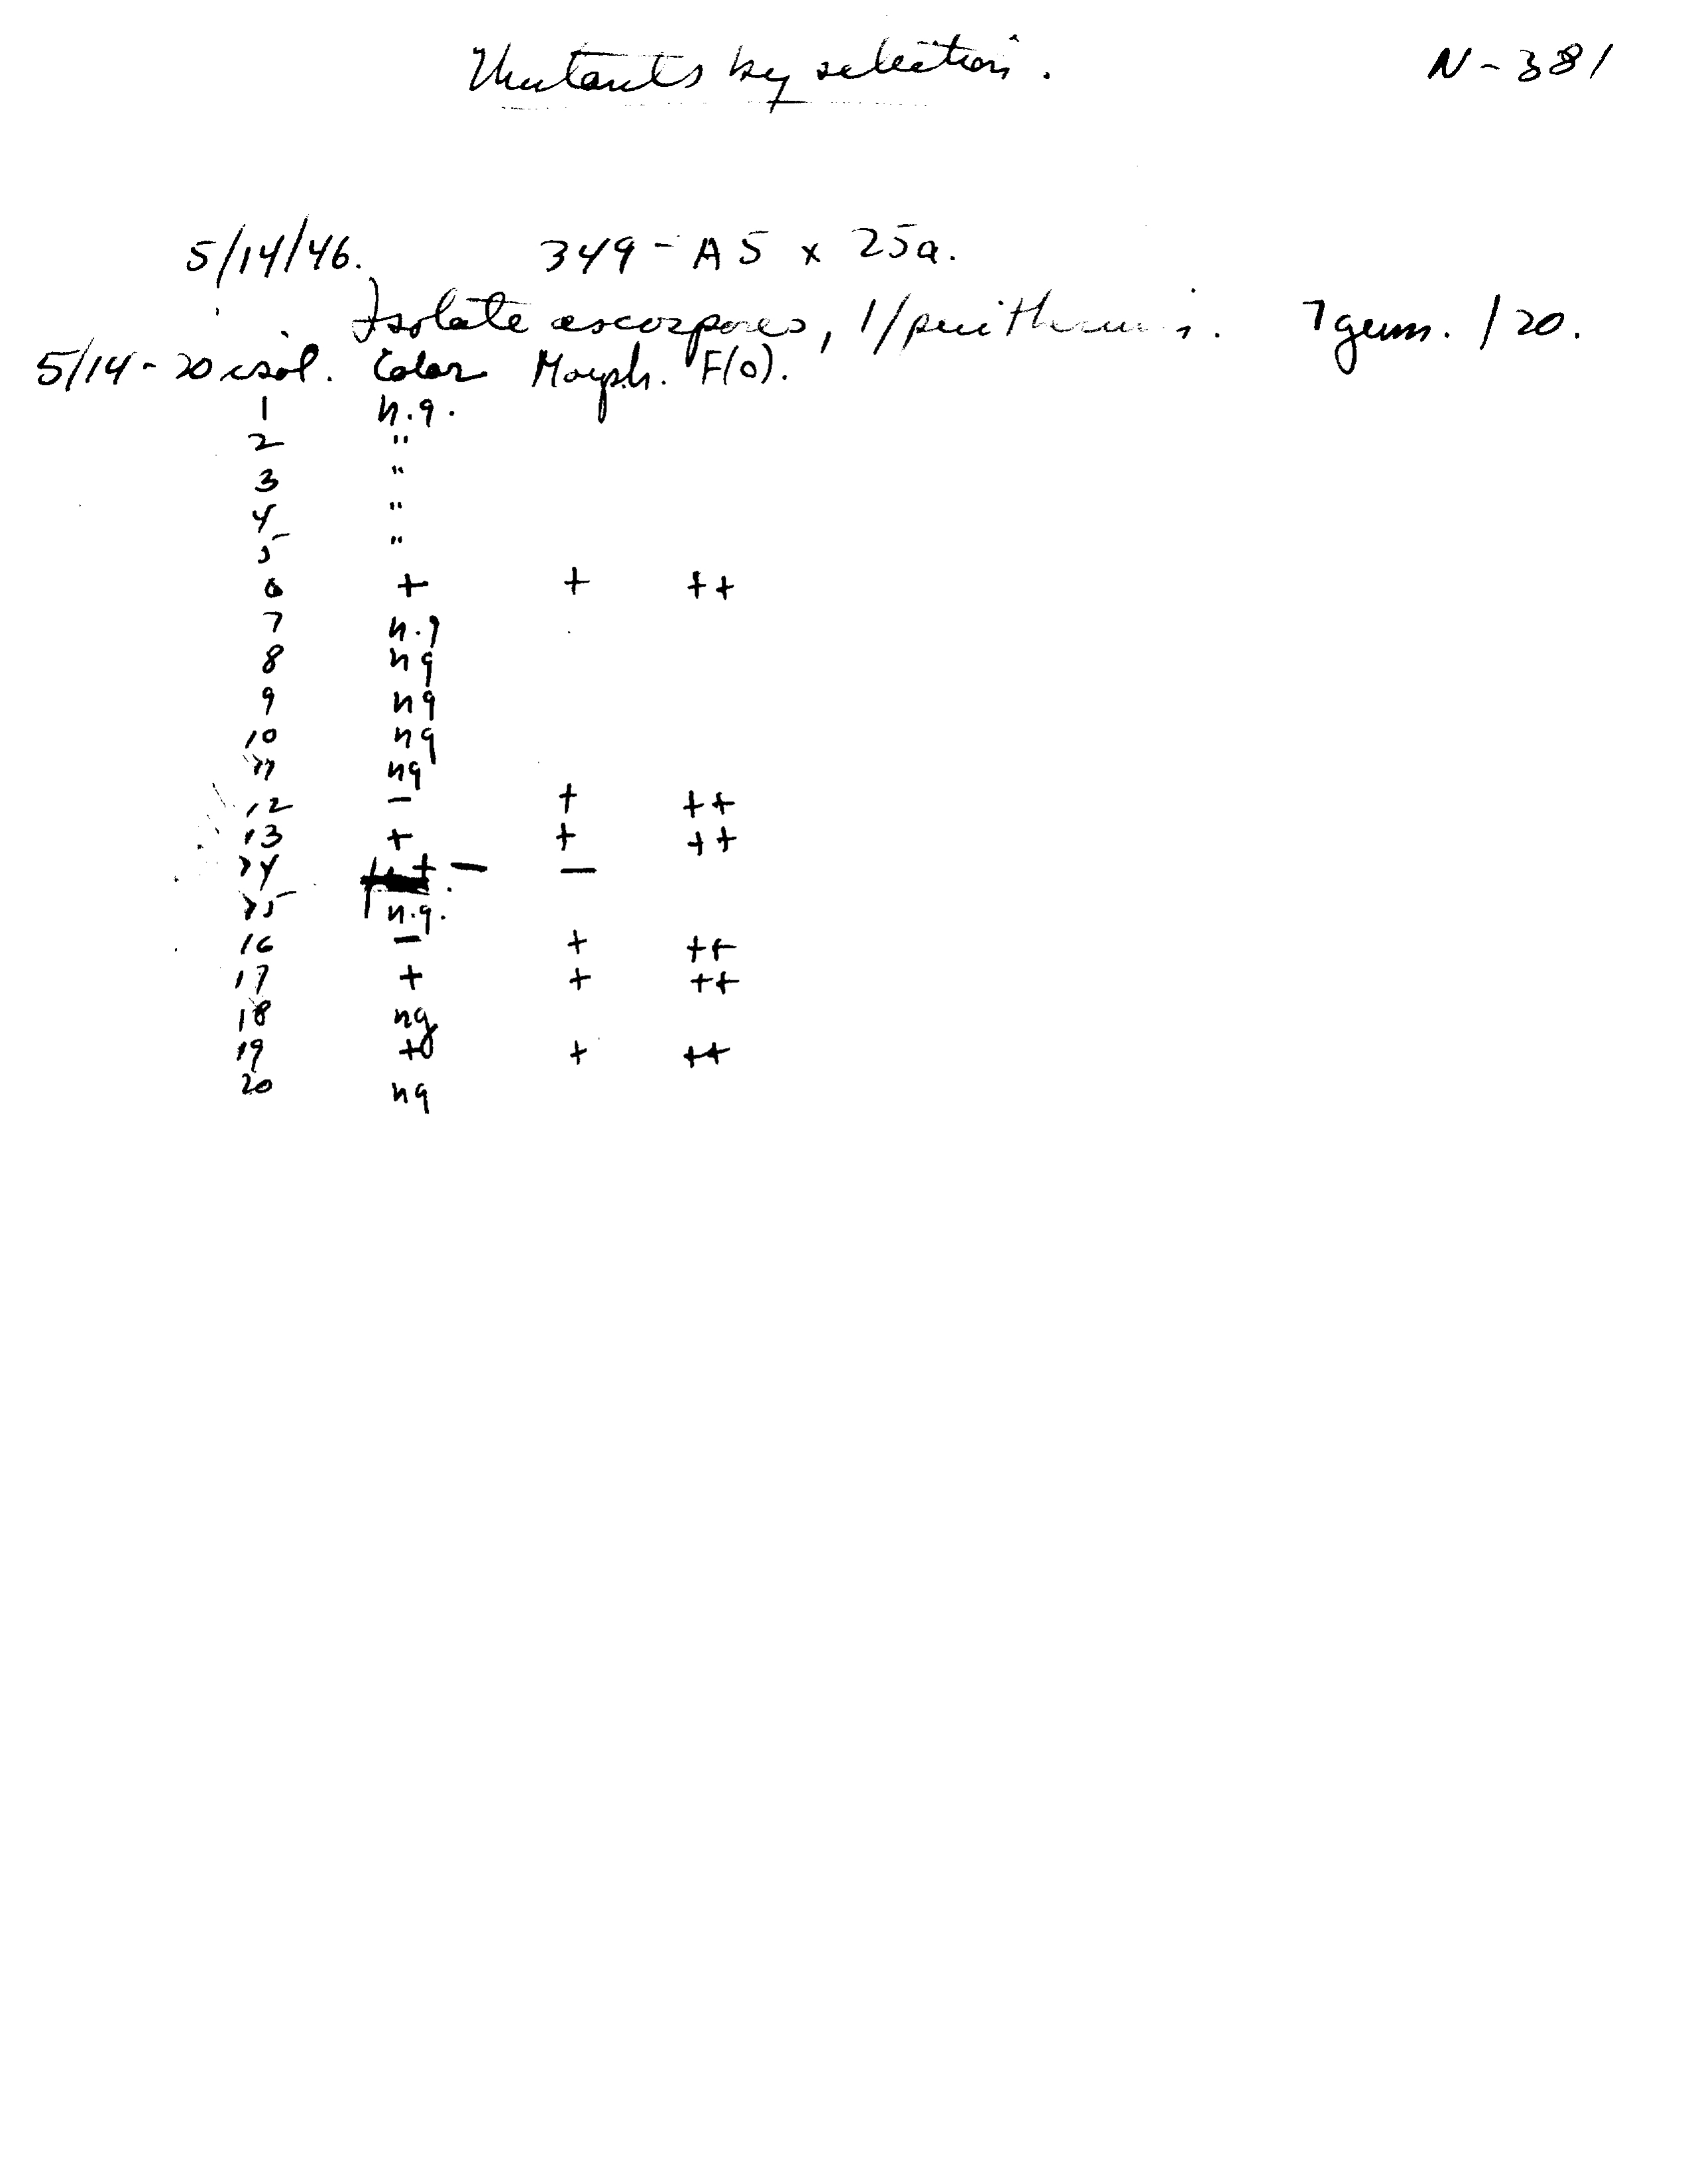 Mutants by selection. N-381
5/14/46. 349-A5 x 25a.
Isolate ascospores, 1/perithecium. 7 germ. /20.
5/14-20 isol. Color Morph. F(0).
1 n.g.
2 "
3 "
4 "
5 "
6 + + ++
7 n.g
8 ng
9 ng
10 ng
11 ng
12 - + ++
13 + + ++
14 + - -
15 n.g.
16 - + ++
17 + + ++
18 ng
19 + + ++
20 ng